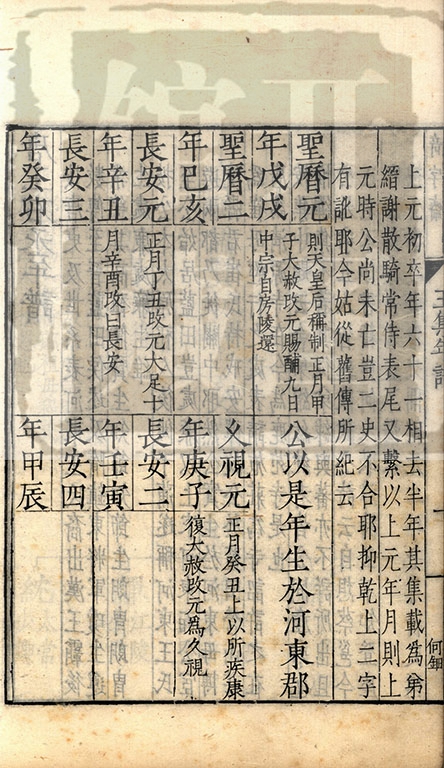 上元初卒年六十一相去半年其集載為弟
縉謝散騎常侍表尾又繫以上元年月則上
元時公尚未亡豈二史不合耶抑乾上二字
有訛耶今姑從舊傳所紀云
聖曆元
年戊戌
則天皇后稱制正月甲
子大赦改元賜酺九日
中宗自房陵還
公以是年生於河東郡
聖曆二
年己亥
久視元
年庚子
正月癸丑上以所疾康
復大赦改元為久視
長安元
年辛丑
正月丁丑改元大足十
月辛酉改曰長安
長安二
年壬寅
長安三
年癸卯
長安四
年甲辰
何鈿